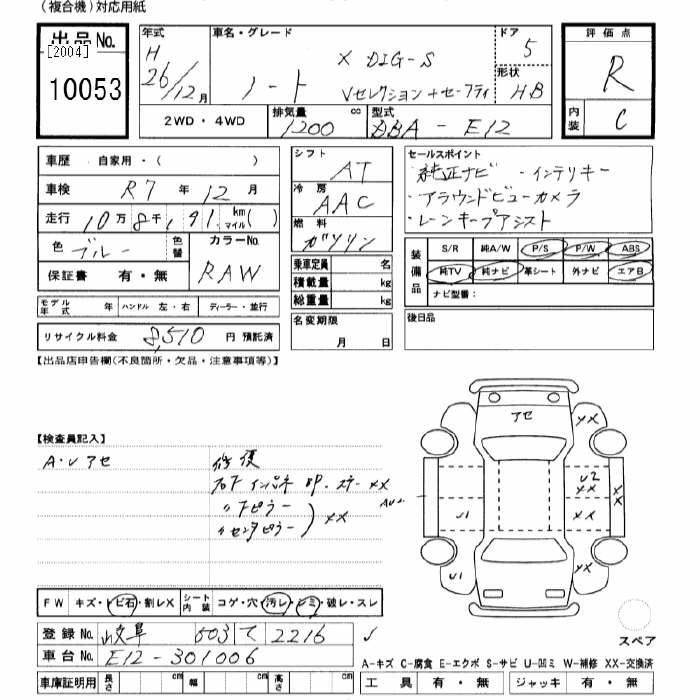 (複合機)対応用紙
出品No.
[2004]
10053
年式
H
26/12月
車名・グレード
ノート
X DIG-S
Vセレクション+セーフティ
ドア
5
形状
HB
評価点
R
内装
C
2WD・4WD
排気量
1200 cc
型式
DBA-E12
車歴 自家用・( )
車検 R7 年 12 月
走行 10万 8千 191 km マイル( )
色 ブルー
色替
カラーNo.
RAW
保証書 有・無
モデル年式 年
ハンドル 左・右
ディーラー・並行
リサイクル料金 8,510 円 預託済
シフト
AT
冷房
AAC
燃料
ガソリン
乗車定員 名
積載量 kg
総重量 kg
名変期限
月 日
セールスポイント
・純正ナビ ・インテリキー
・アラウンドビューカメラ
・レーンキープアシスト
装備品
S/R 純A/W P/S P/W ABS
純TV 純ナビ 革シート 外ナビ エアB
ナビ型番:
後日品
【出品店申告欄(不良箇所・欠品・注意事項等)】
【検査員記入】
A・Uアセ
修復
右F インパネ
ステー XX
〃Fピラー
〃センタピラー
XX
アセ
XX
U2
XX
XX
XX
U1
U1
FW キズ・トビ石・割レX
シート内装 コゲ・穴・汚レ・シミ・破レ・スレ
登録No. 岐阜 503 て 2216
車台No. E12-301006
車庫証明用 長さ cm 幅 cm 高さ cm
スペア
A-キズ C-腐食 E-エクボ S-サビ U-凹ミ W-補修 XX-交換済
工具 有・無 ジャッキ 有・無